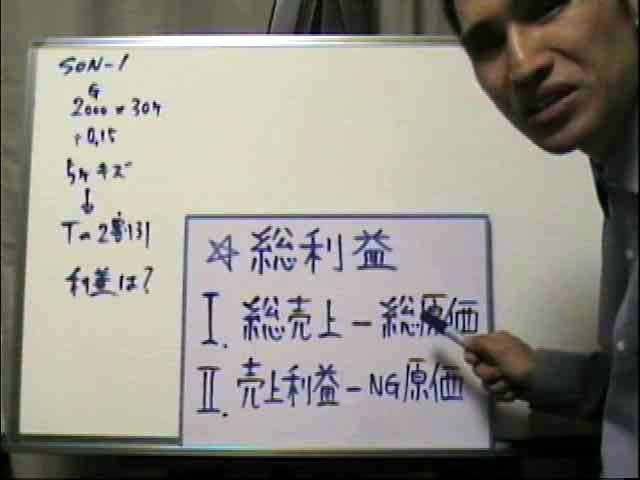 SON-1
G
2000×30ケ
+0.15
5ケキズ
↓
Tの2割引
利益は?
☆総利益
I. 総売上-総原価
II. 売上利益-NG原価